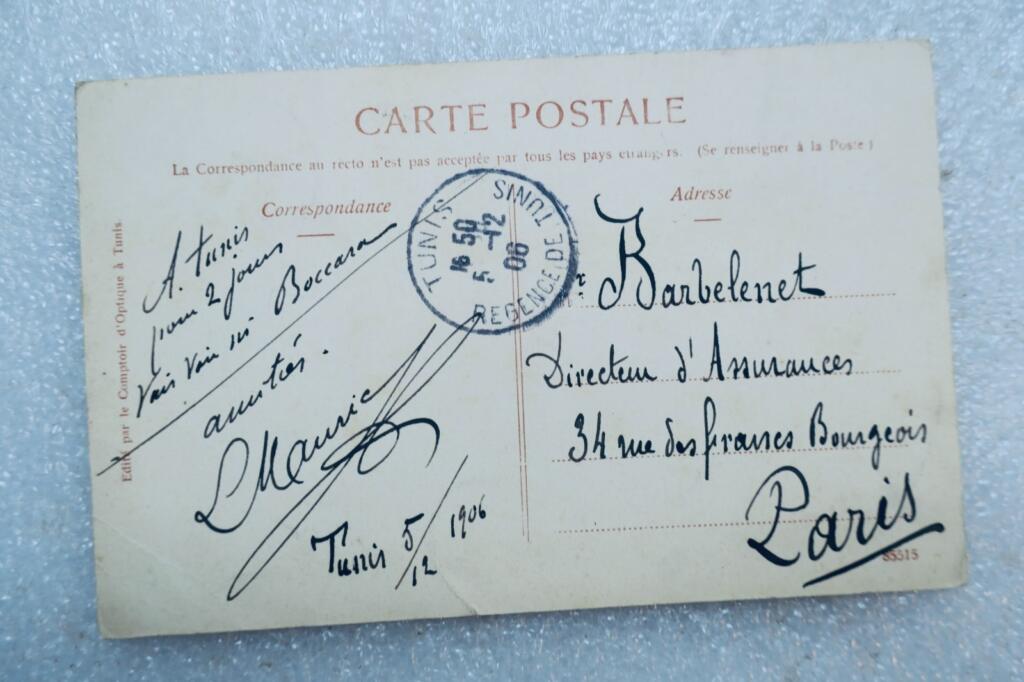 CARTE POSTALE
La Correspondance au recto n'est pas acceptée par tous les pays étrangers. (Se renseigner à la Poste)
Correspondance
Adresse
A. Tunis
pour 2 jours
Vais voir Boccara
amitiés.
LMaurice
Tunis 5/12 1906
TUNIS
16 50
5 -12
06
REGENCE DE TUNIS
r Barbelenet
Directeur d'Assurances
34 rue des francs Bourgeois
Paris
Edité par le Comptoir d'Optique à Tunis
85515